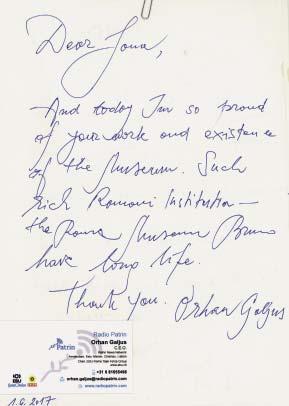 Dear Jana,
And today I'm so proud
of your work and existence
of the Museum. Such
rich Romani Institution –
the Roma Museum Brno
have long life.
Thank you. Orhan Galjus
Radio Patrin
Orhan Galjus
C.E.O.
Patrin
+31 6 81655466
orhan.galjus@radiopatrin.com
www.radiopatrin.com
1.6.2017